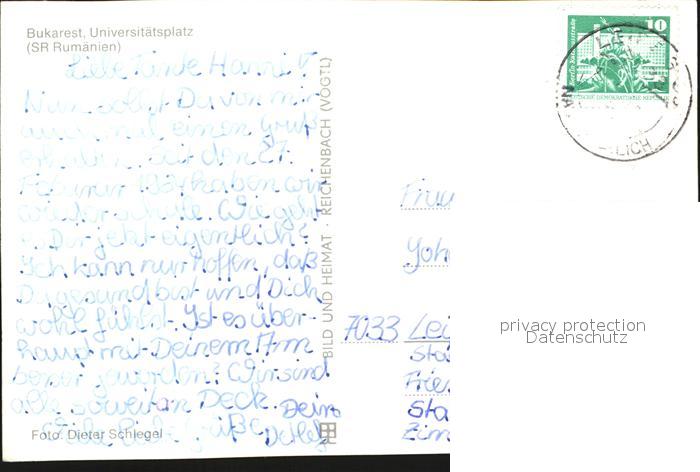 Bukarest, Universitätsplatz
(SR Rumänien)
Liebe Tante Hanni!
Nun sollst Du von mir
auch mal einen Gruß
erhalten. Seit den 27.
Februar 1984 haben wir
wieder Schule. Wie geht
es Dir jetzt eigentlich?
Ich kann nur hoffen, daß
Du gesund bist und Dich
wohl fühlst. Ist es über-
haupt mit Deinem Arm
besser geworden? Wir sind
alle soweit an Deck. Dein
Viele liebe Grüße Detlef
Foto: Dieter Schlegel
BILD UND HEIMAT · REICHENBACH (VOGTL)
10
DEUTSCHE DEMOKRATISCHE REPUBLIK
LICH
Frau
Joh
7033 Lei
Sta
Frie
Sta
Zim
privacy protection
Datenschutz